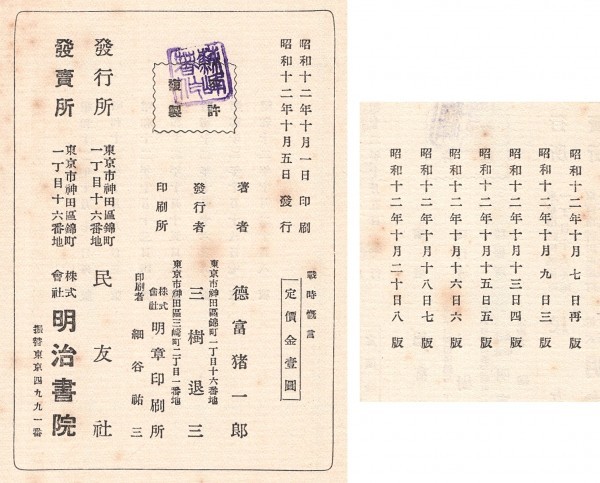 昭和十二年十月一日印刷
昭和十二年十月五日發行
許
複製
戰時慨言
定價金壹圓
著者 德富猪一郎
東京市神田區錦町一丁目十六番地
發行者 三樹退三
東京市神田區三崎町二丁目一番地
印刷所 株式會社 明章印刷所
印刷者 細谷祐三
發行所 東京市神田區錦町一丁目十六番地 民友社
發賣所 東京市神田區錦町一丁目十六番地 株式會社 明治書院
振替東京四九九一番
昭和十二年十月七日再版
昭和十二年十月九日三版
昭和十二年十月十三日四版
昭和十二年十月十五日五版
昭和十二年十月十六日六版
昭和十二年十月十八日七版
昭和十二年十月二十日八版